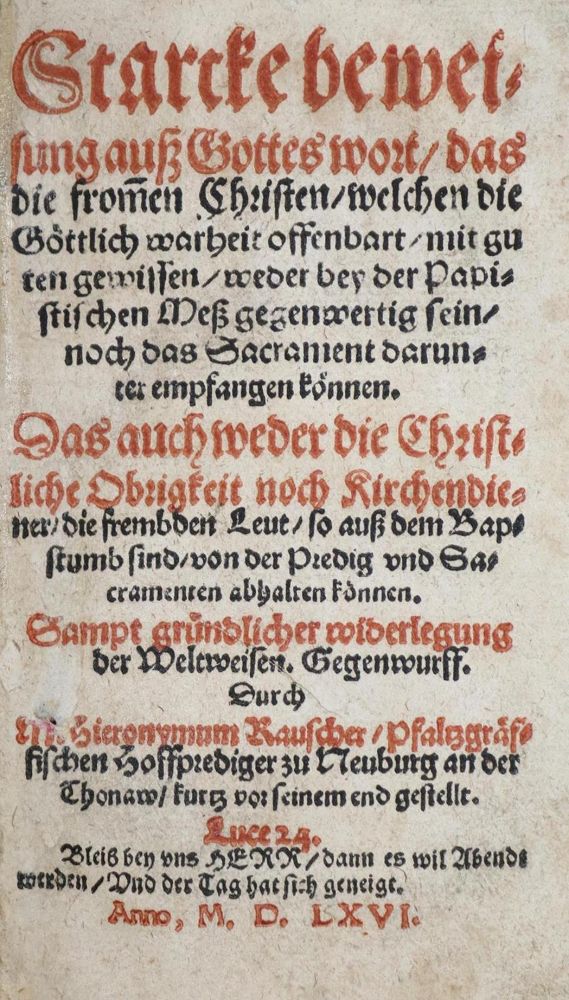 Starcke bewei-
sung auß Gottes wort / das
die from̃en Christen / welchen die
Göttlich warheit offenbart / mit gu
ten gewissen / weder bey der Papi-
stischen Meß gegenwertig sein /
noch das Sacrament darun-
ter empfangen können.
Das auch weder die Christ-
liche Obrigkeit noch Kirchendie-
ner / die frembden Leut / so auß dem Bap-
stumb sind / von der Predig vnd Sa-
cramenten abhalten können.
Sampt gründlicher widerlegung
der Weltweisen. Gegenwurff.
Durch
M. Hieronymum Rauscher / Pfaltzgräf-
fischen Hoffprediger zu Neuburg an der
Thonaw / kurtz vor seinem end gestellt.
Luce 24.
Bleib bey vns HERR / dann es wil Abends
werden / Vnd der Tag hat sich geneigt.
Anno, M. D. LXVI.